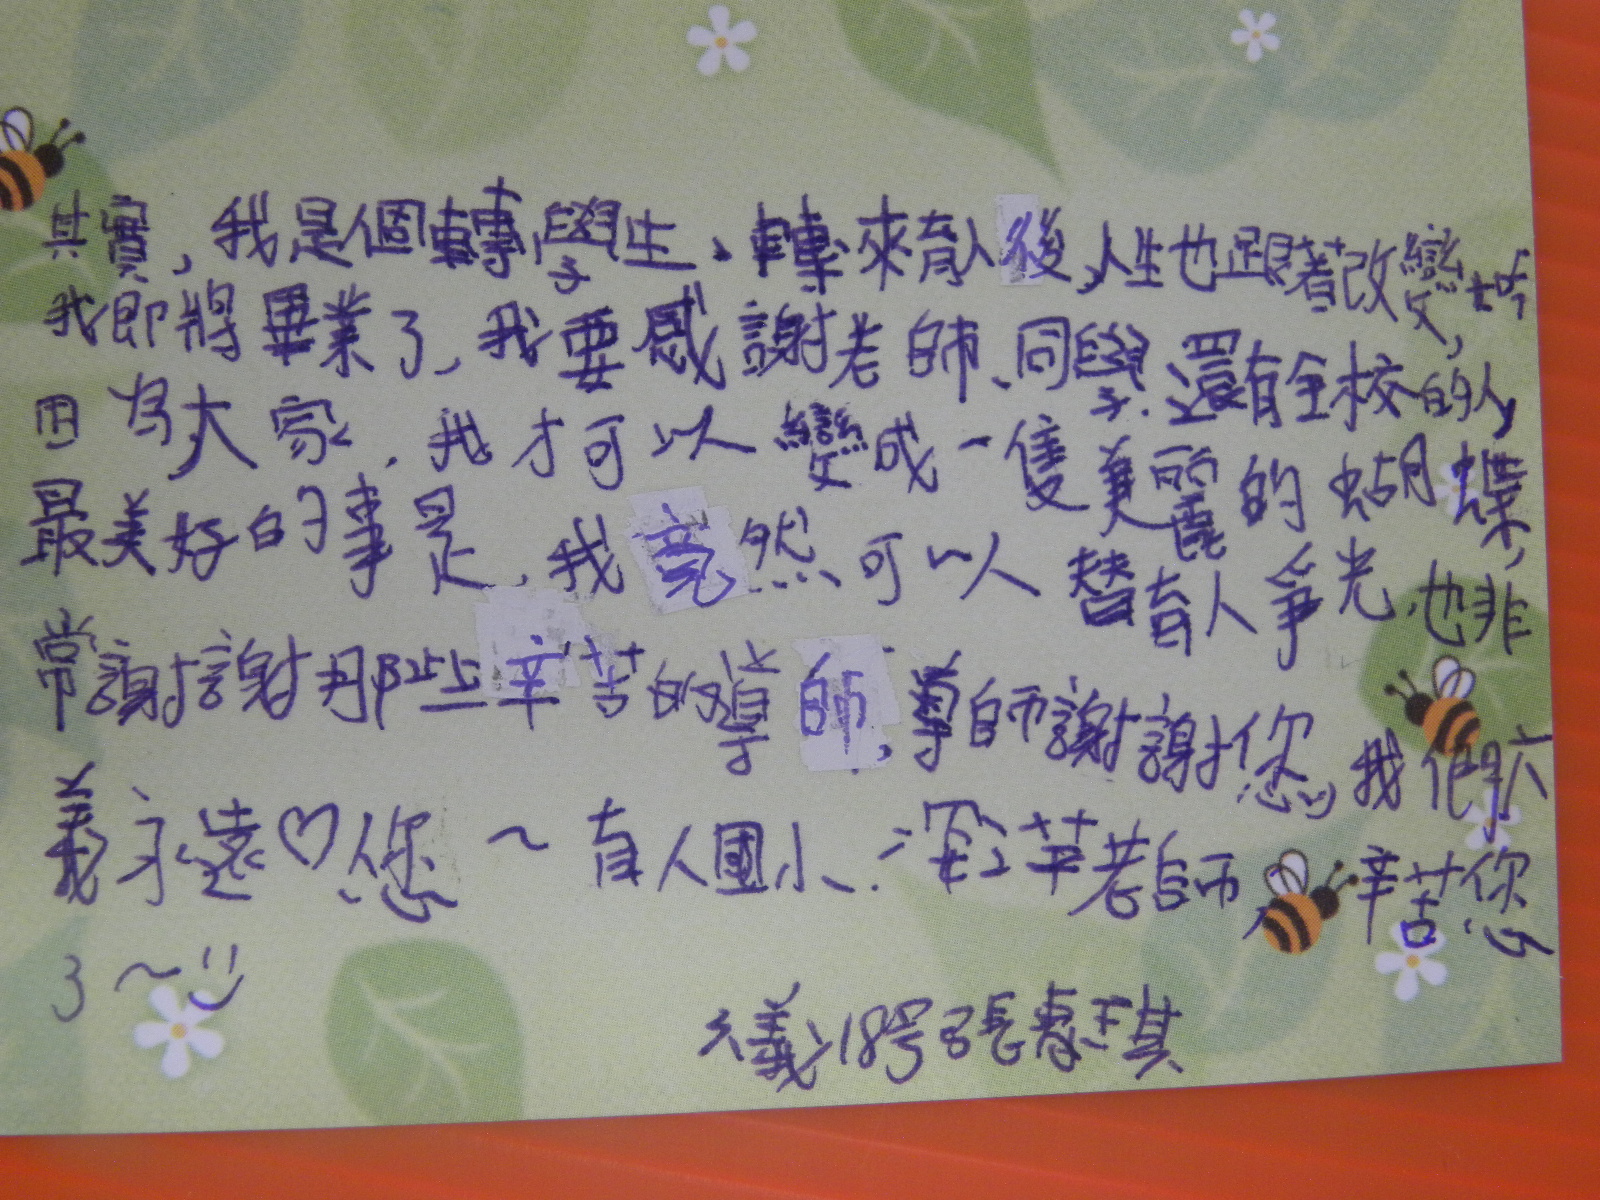 其實,我是個轉學生、轉來育人後,人生也跟著改變好
我即將畢業了,我要感謝老師、同學.還有全校的人,
因為大家.我才可以變成一隻美麗的蝴蝶,
最美好的事是,我竟然可以替育人爭光,也非
常謝謝那些辛苦的導師,導師謝謝您,我們六
義永遠♡您~育人國小.湮苹老師,辛苦您
了~
六義18号張惠琪